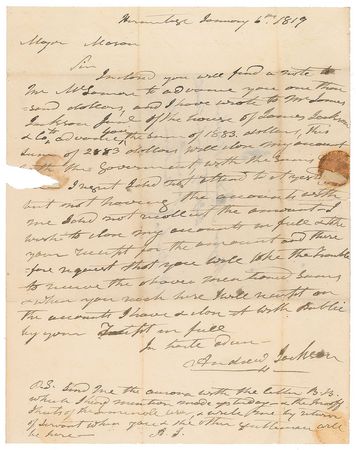 Hermitage January 6th 1819
Major Mason
Sir
Inclosed you will find a note to
Mr McLemore to advance you one thou
sand dollars, and I have wrote to Mr James
Jackson Junr of the house of James Jackson
& Co to advance you the sum of 1883 dollars, this
sum of 2883 dollars will close my account
with the Government with the
I regret I did not attend to it
but not having the accounts with
me I did not recollect the amount I
wrote to close my accounts in full & the
your receipt for the amount and there
fore request that you will take the trouble
to receive the above mentioned sums
& when you reach here I will receipt on
the accounts I have & close it with Public
by your receipt in full
In haste adieu
Andrew Jackson
P.S. send me the with the letter B.B.
which I mention made yesterday & the proof
sheets of the & write me by return
of servant when you & the other gentlemen will
be here
A J.